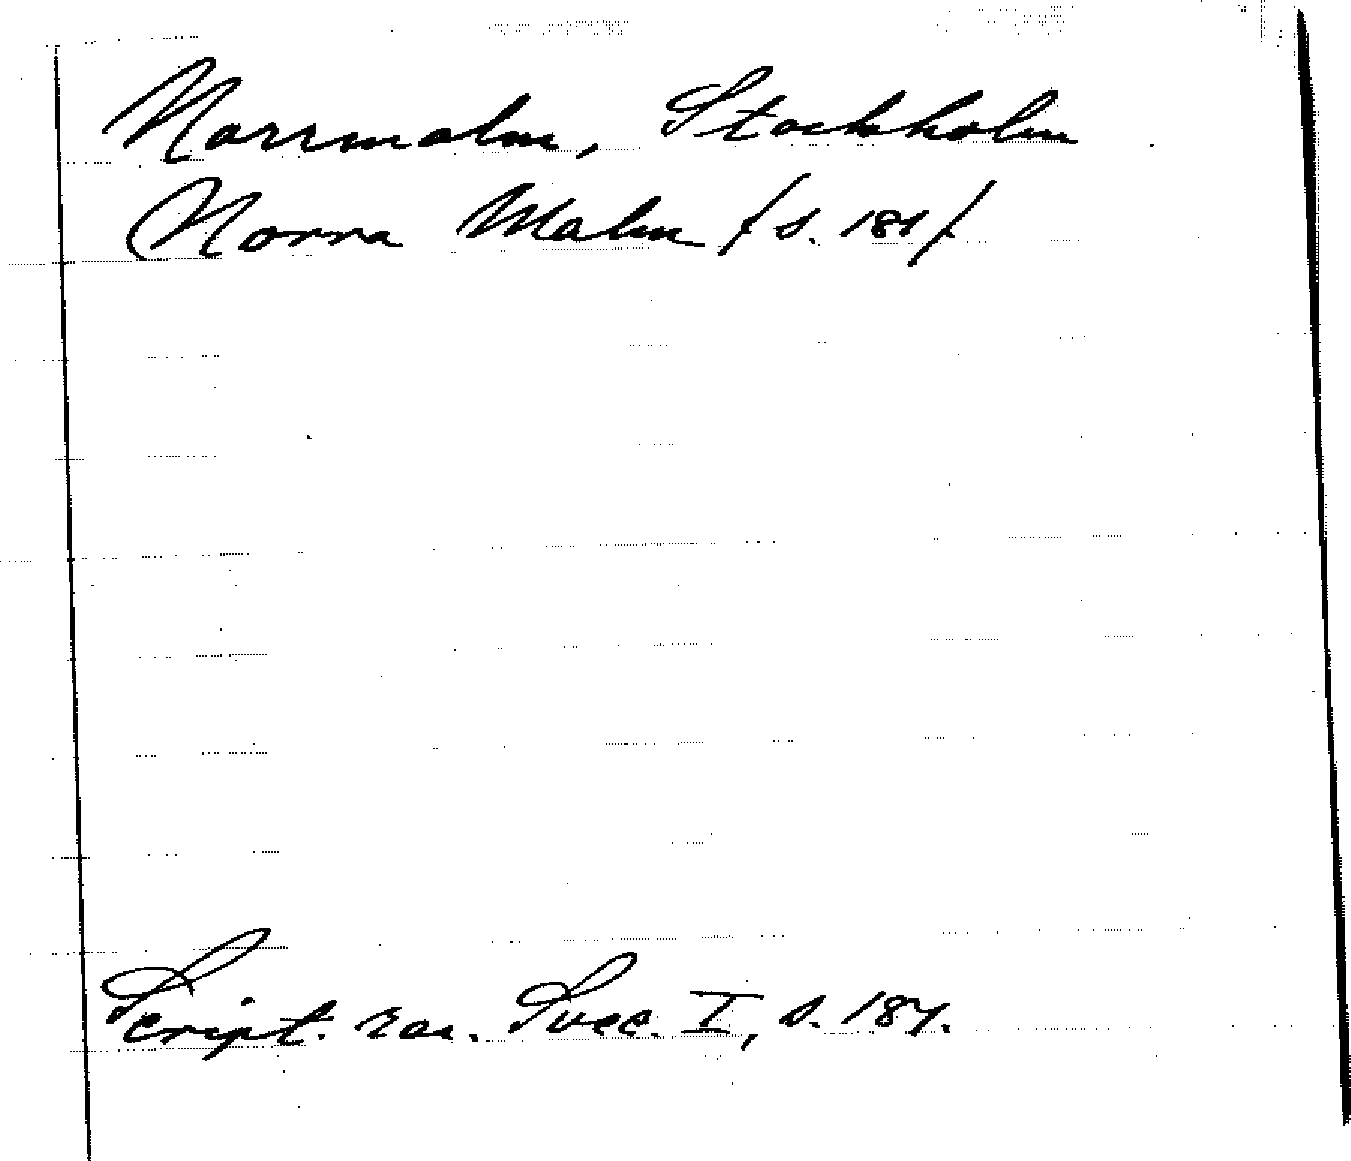 Norrmalm, Stockholm
Norra Malm /s. 187/
Script. rer. Svec. I, s. 187.